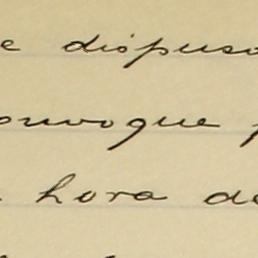 e dispuso
onvoque
hora de